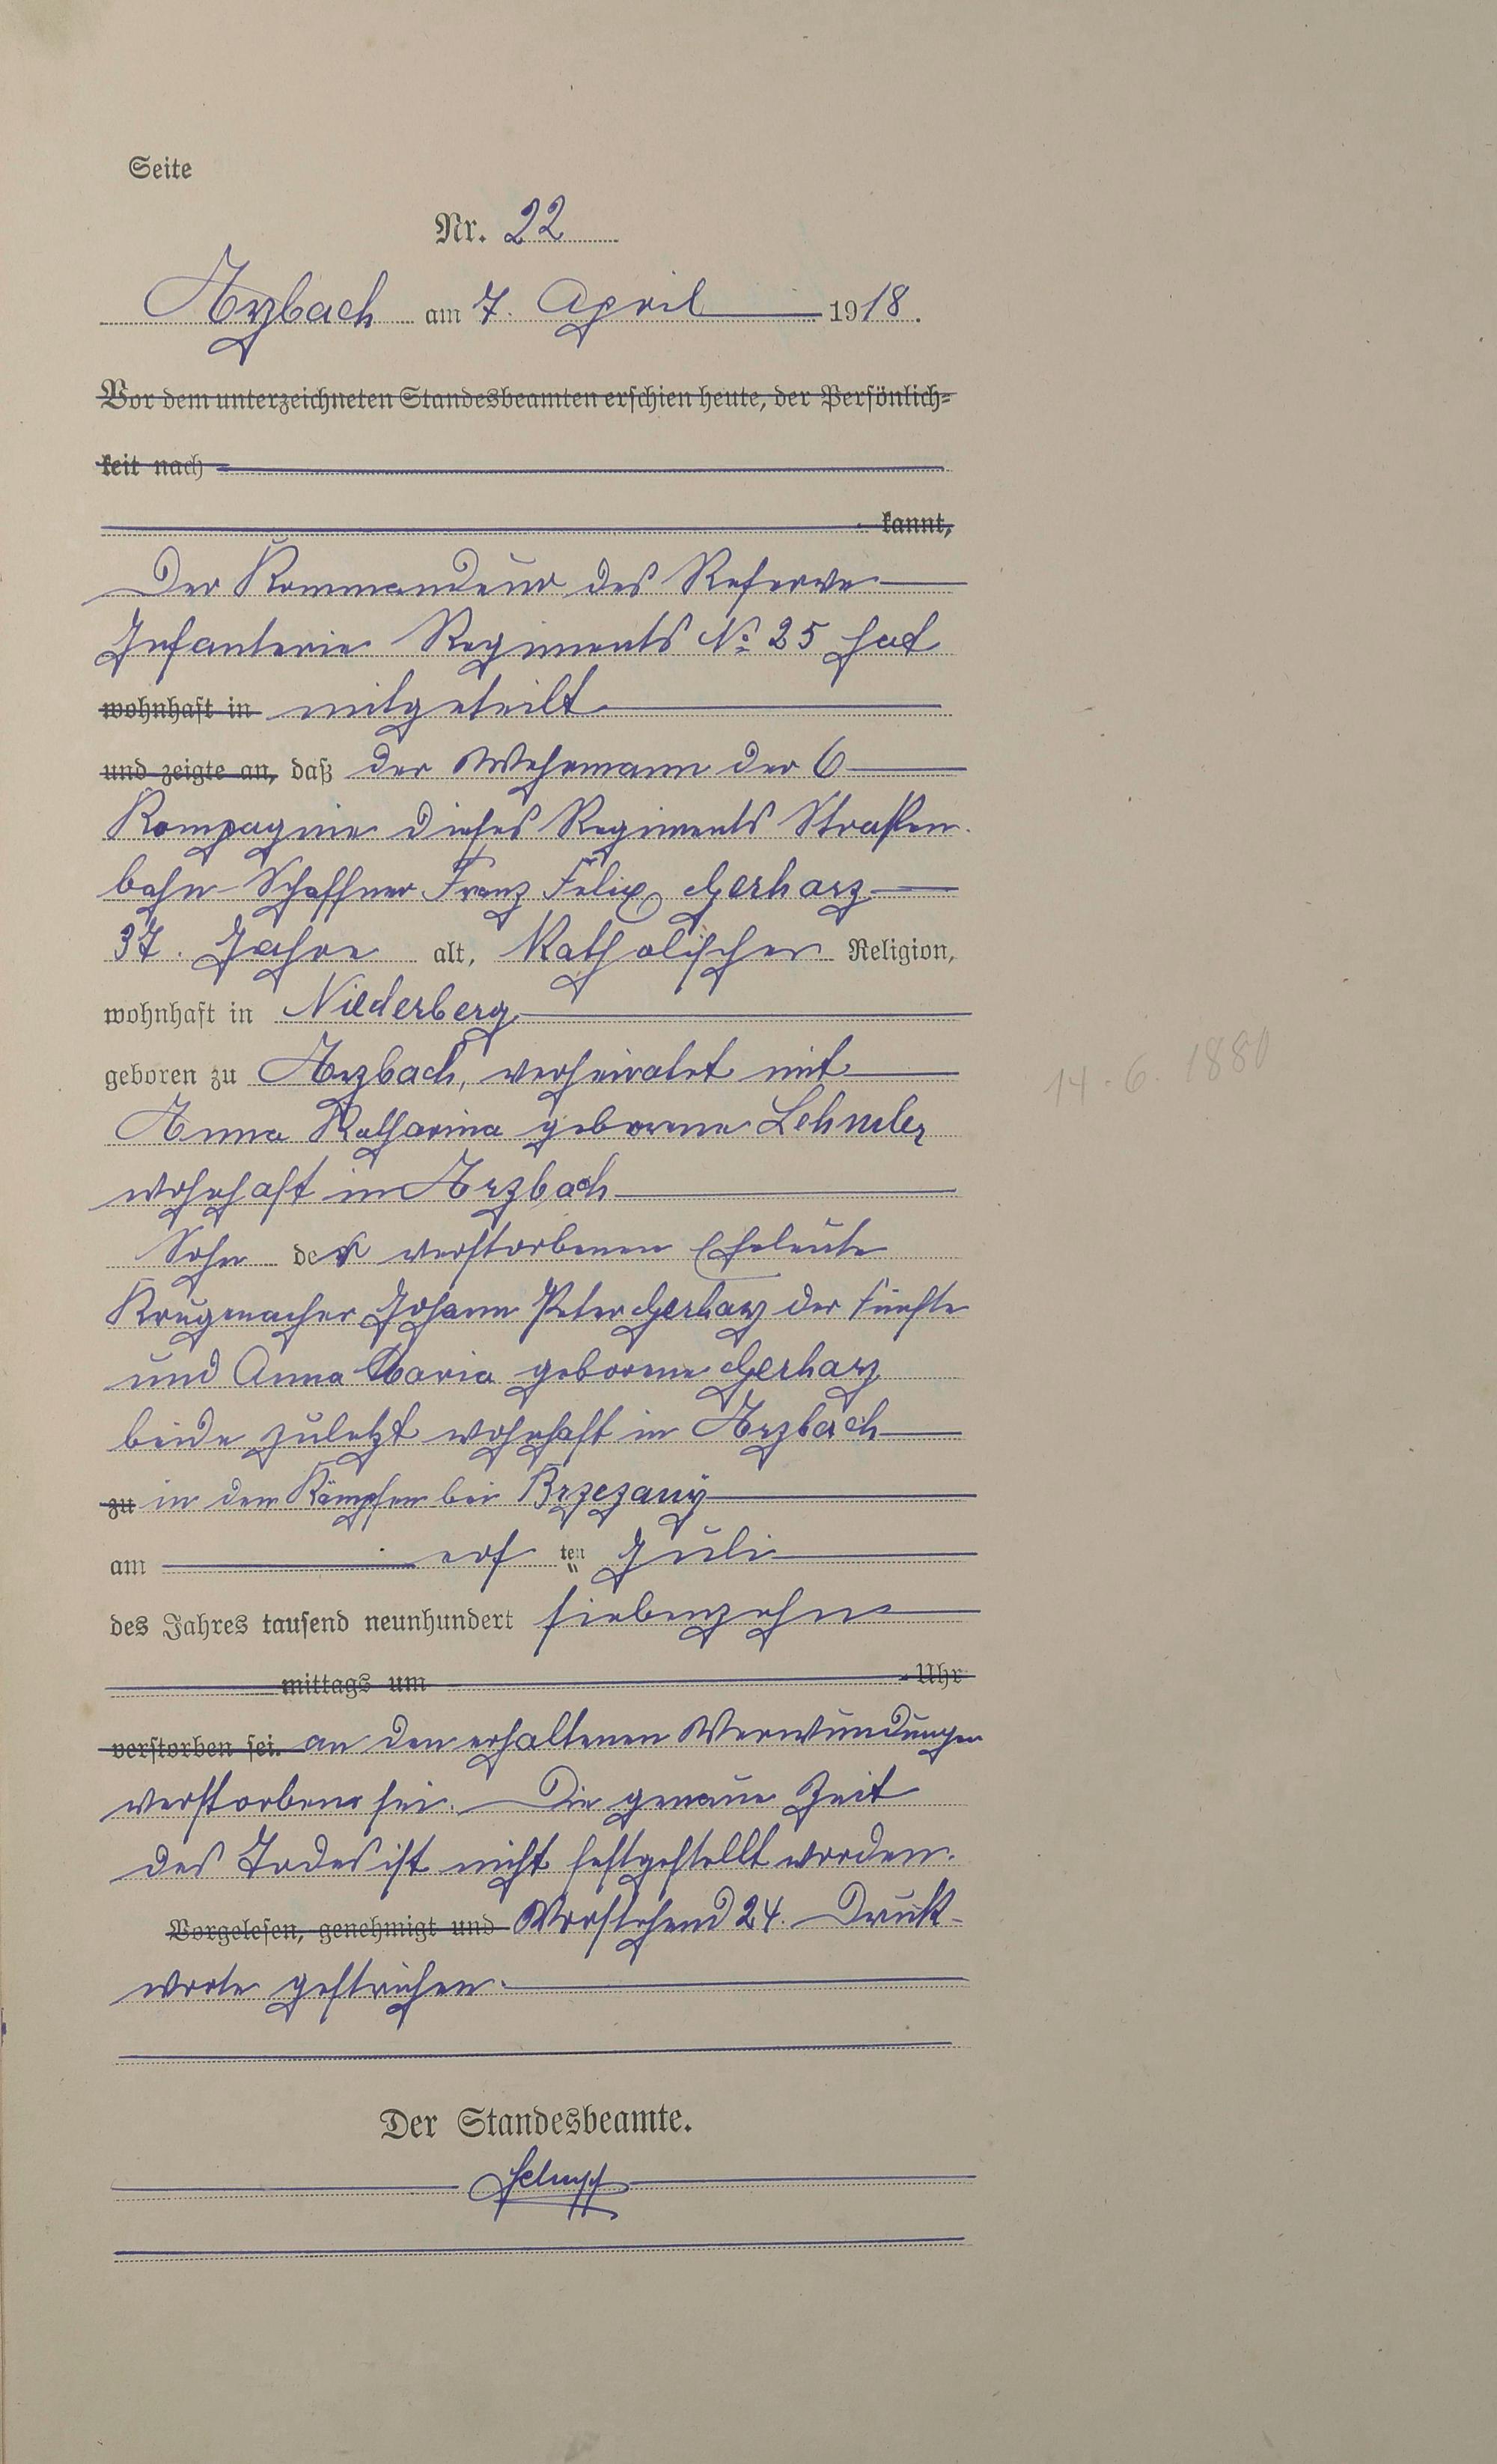 Seite
Nr. 22
Arzbach am 7. April 1918.
Vor dem unterzeichneten Standesbeamten erschien heute, der Persönlich=
keit nach
kannt,
Der Kommandeur des Reserve
Infanterie Regiments No 25 hat
wohnhaft in mitgeteilt
und zeigte an, daß der Wehrmann der 6
Kompagnie dieses Regiments Straßen
bahn-Schaffner Franz Felix Gerharz
37. Jahre alt, Katholischer Religion,
wohnhaft in Niederberg
geboren zu Arzbach, verheiratet mit
14.6.1880
Anna Katharina geborene
wohnhaft in Arzbach
Sohn der verstorbenen Eheleute
Krugmacher Johann Peter Gerharz der fünfte
und Anna Maria geborene Gerharz
beide zuletzt wohnhaft in Arzbach
zu in den Kämpfen bei Brzezany
am ersten Juli
des Jahres tausend neunhundert siebenzehn
mittags um Uhr
verstorben sei. an den erhaltenen Verwundungen
verstorben sei. Die genaue Zeit
des Todes ist nicht festgestellt worden.
Vorgelesen, genehmigt und Vorstehend 24. Druck-
worte gestrichen.
Der Standesbeamte.